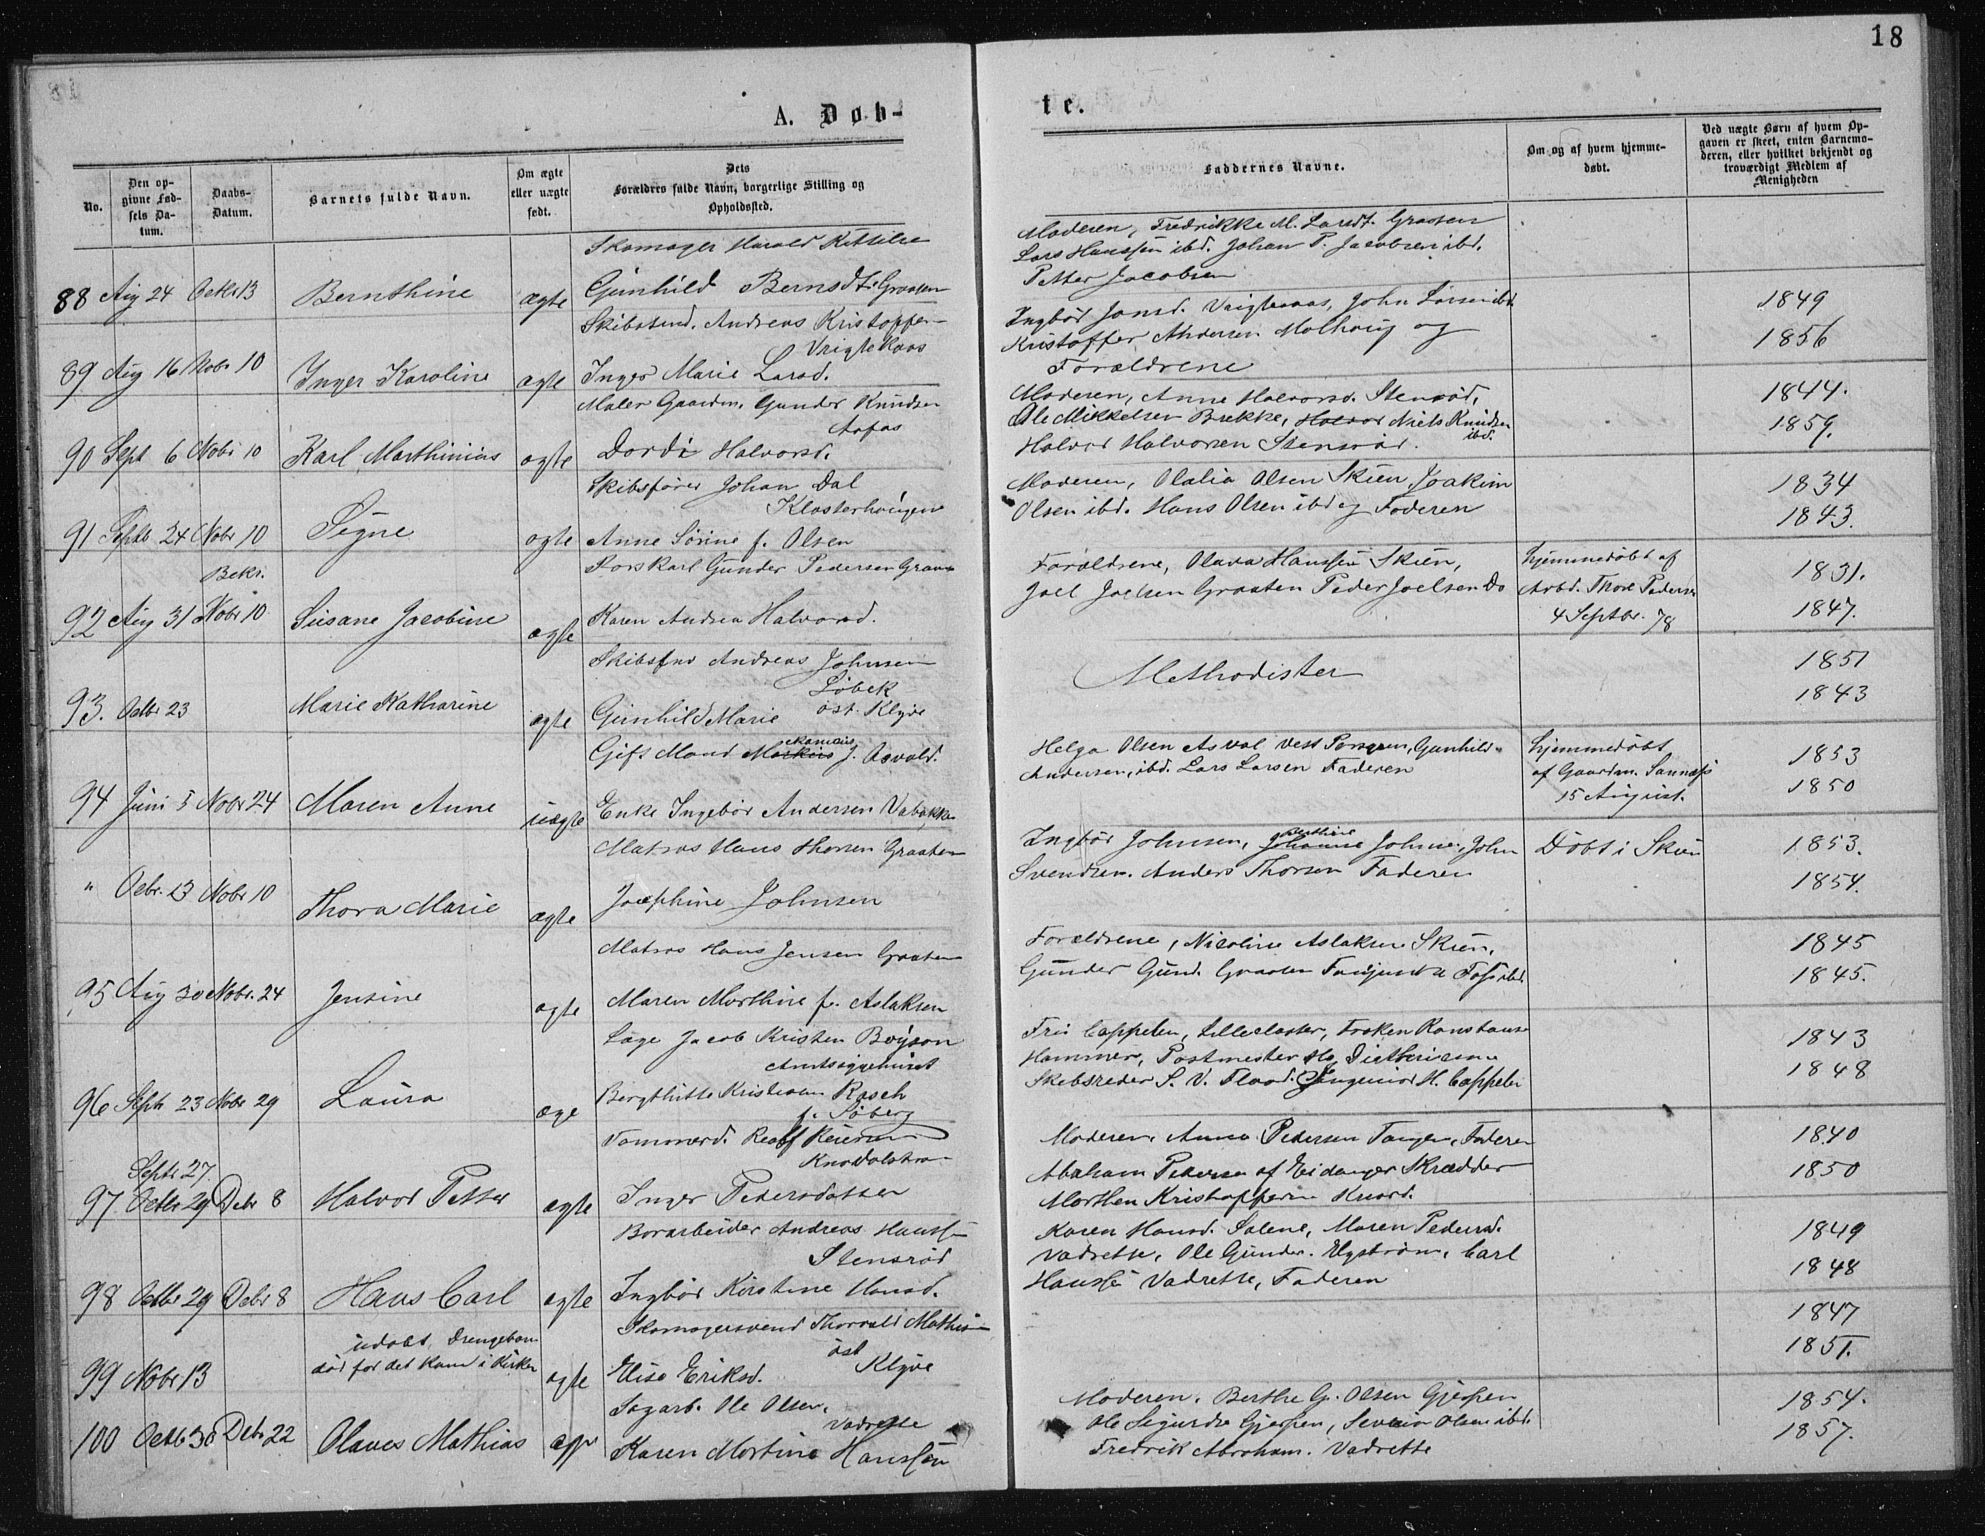 18
A. Døb-
te.
No.
Den op-
givne Fød-
sels Da-
tum.
Daabs-
Datum.
Barnets fulde Navn.
Om ægte
eller uægte
født.
Dets
Forældres fulde Navn, borgerlige Stilling og
Opholdssted.
Faddernes Navne.
Om og af hvem hjemme-
døbt.
Ved uægte Børn af hvem Op-
gaven er skeet, enten Barnemo-
deren, eller hvilket bekjendt og
troværdigt Medlem af
Menigheden
Skomager Harald Kittilse
88 Aug 24 Octbr 13 Bernthine ægte Gunhild Bernsdt. Graaten
Moderen, Fredrikke M. Larsdt. Graaten
Lars Hanssen ibd. Johan P. Jacobsen ibd.
Petter Jacobsen
1849
1856
Skibstmd. Andreas Kristoffer-
Vrigtekaas
89 Aug 16 Nobr 10 Inger Karoline ægte Inger Marie Larsd.
Ingbør Jonsd. John Larsen ibd
Kristoffer Andersen Molhaug og
Forældrene
1844.
1859.
Maler Gaardm. Gunder Knudsen
90 Sept 6 Nobr 10 Karl Marthinius ægte Dordi Halvorsd.
Moderen, Anne Halvorsd. Stensrød,
Ole Mikkelsen Brekke, Halvor Niels Knudsen
ibd.
Halvor Halvorsen Stensrød.
1834
1843.
Skibsfører Johan Dal
Klosterhaugen
91 Septb 24 Nobr 10 Signe ægte Anne Sørine f. Olsen
Moderen, Olalia Olsen Skien Joakim
Olsen ibd. Hans Olsen ibd og Faderen
1831.
1847.
Forskarl Gunder Pedersen Graaten
Bekr.
92 Aug 31 Nobr 10 Susane Jacobine ægte Karen Andrea Halvorsd.
Forældrene, Olava Hanssen Skien,
Joel Joelsen Graaten Peder Joelsen Do
hjemmedøbt af
Arbd. Thore Pedersen
4 Septbr. 78
1851
1843
Skibsfnd Andreas Johnsen
Løbek
øst. Klyve
93. Octbr 23 Marie Katharine ægte Gunhild Marie
Methodister
1853
1850
Gift Mand J. Asvald.
94 Juni 5 Nobr 24 Maren Anne uægte Enke Ingebør Andersen Vabakken
Helga Olsen Asval Vest Porsgrun, Gunhild
Andersen, ibd. Lars Larsen Faderen
hjemmedøbt
af Gaardm. Sannæss
15 August.
1853.
1854.
Matros Hans Thorsen Graaten
" Octbr. 13 Nobr 10 Thora Marie ægte Josephine Johnsen
Ingbør Johnsen, Johanne Johnsen, John
Svendsen. Anders Thorsen Faderen
Døbt i Skien
1845
1845.
Matros Hans Jensen Graaten
95 Aug 30 Nobr. 24 Jensine ægte Maren Marthine f. Aslaksen
Forældrene, Nicoline Aslaksen Skien,
Gunder Gund. Graaten
1843
1848
Læge Jacob Kristen Boyson
Amtssygehuset
96 Septr 23 Nobr 29 Laura æge Bergthitte Kristiane Rasch
f. Søberg
Fru Cappelen, Lilleclaster, Frøken Konstanse
Hammer, Postmester
Skibsreder S. V. Flood. Ingeniør H. Cappelen
1840
1850
Tømmerd. Reiersen
Knardalstran
Septr 27.
97. Octbr 29 Debr 8 Halvor Petter ægte Inger Pedersdatter
Moderen, Anna Pedersen Tangen, Faderen
Abraham Pedersen af Eidanger Skrædder
Morthen Kristoffersen Knard.
1849
1848
Borarbeider Andreas Hanss
Stensrød
98 Octbr 29 Debr 8 Hans Carl ægte Ingbør Kirstine Hansd.
Karen Hansd. Solene, Maren Pedersd.
Vadrette, Ole Gunder. Carl
Hanssen Vadrette, Faderen
1847
1851.
Skomagersvend Thorvald Mathis
øst
Klyve
udøbt Drengebarn
død før det kom i Kirken
99 Nobr 13 ægte Elise Eriksd.
1854.
1857.
Sagarb. Ole Olsen,
Vadrette
100 Octbr 30 Debr 22 Olaves Mathias Karen Martine Hanssen
Moderen. Berthe G. Olsen Gjerpen
Ole Sigurdse Gjerpen, Severin Olsen ibd.
Fredrik Abraham. Vadrette